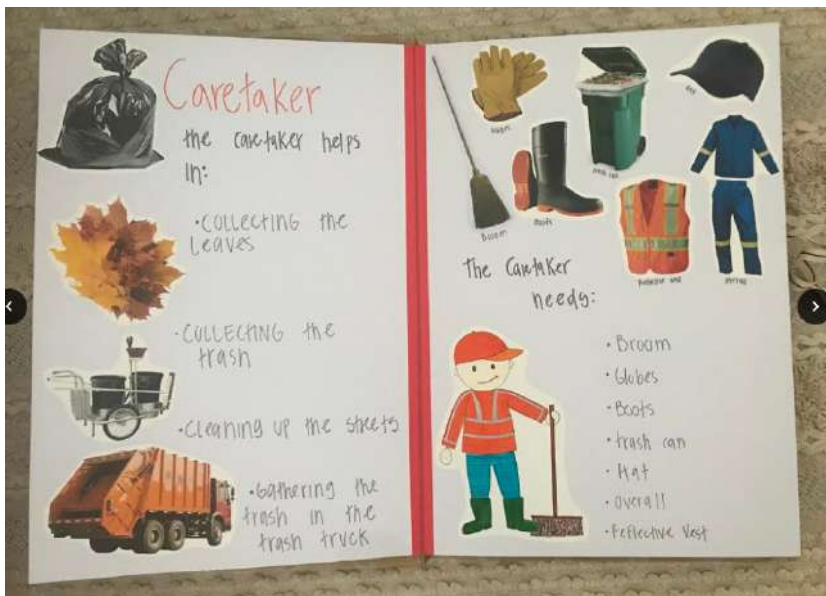 Caretaker
the caretaker helps
in:
•COLLECTING the
Leaves
•COLLECTING the
trash
•Cleaning up the streets
•Gathering the
trash in the
trash truck
Broom
Boots
trash can
The Caretaker
needs:
•Broom
•Globes
•Boots
•trash can
•Hat
•Overall
•Reflective Vest